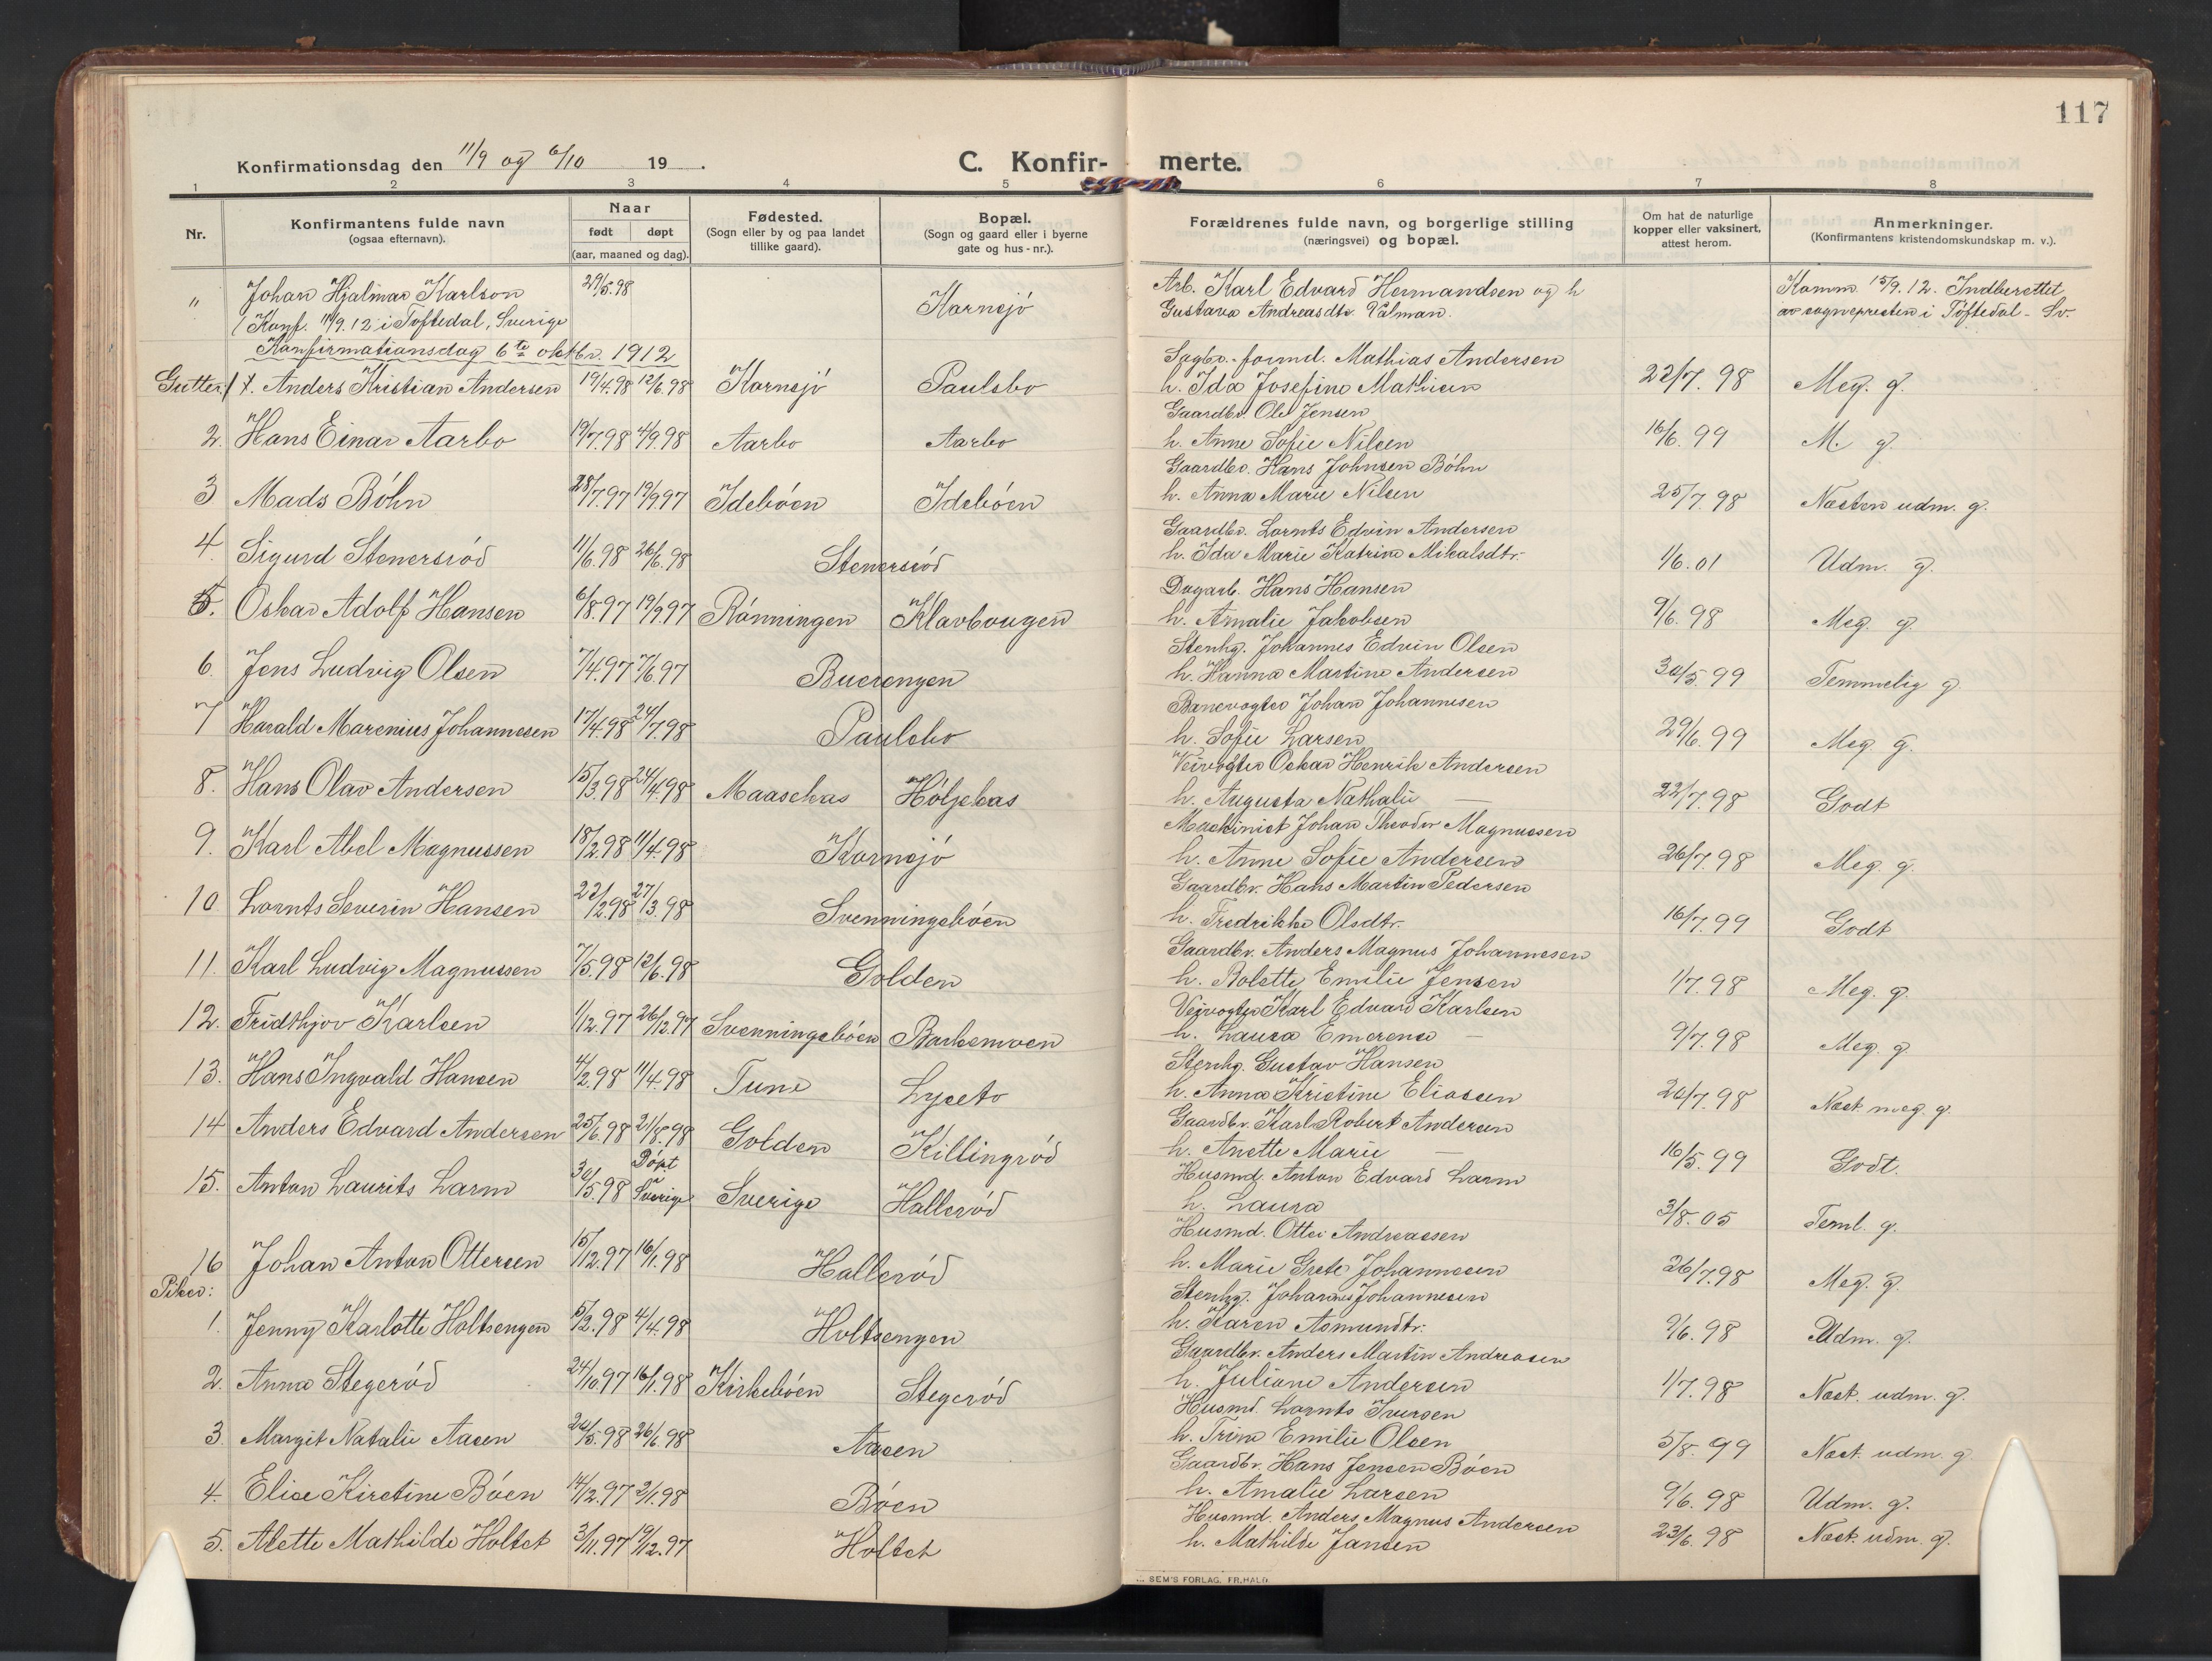 117
Konfirmationsdag den 11/9 og 6/10 19 .
C. Konfir- merte.
1 2 3 4 5 6 7 8
Nr.
Konfirmantens fulde navn
(ogsaa efternavn).
Naar
født døpt
(aar, maaned og dag).
Fødested.
(Sogn eller by og paa landet
tillike gaard).
Bopæl.
(Sogn og gaard eller i byerne
gate og hus - nr.).
Forældrenes fulde navn, og borgerlige stilling
(næringsvei) og bopæl.
Om hat de naturlige
kopper eller vaksinert,
attest herom.
Anmerkninger.
(Konfirmantens kristendomskundskap m. v.).
" Johan Hjalmar Karlson 29/5.98 Kornsjø Arb. Karl Edvard Hermandsen og h Komm. 15/9.12. Indberettet
(Konf. 11/9.12 i Töftedal, Sverige Gustava Andreasdtr Vålman. av sognepresten i Töftedal - Sv.
Konfirmationsdag 6te oktbr. 1912
Sagbr.-formd. Mathias Andersen
Gutter: 1. Anders Kristian Andersen 19/4.98 12/6.98 Kornsjø Paulsbo h. Ida Josefine Mathisen 22/7.98 Meg. g.
Gaardbr. Ole Jensen
2. Hans Einar Aarbo 19/7.98 4/9.98 Aarbo Aarbo h. Anne Sofie Nilsen 16/6.99 M. g.
Gaardbr. Hans Johnsen Bøhn
3 Mads Bøhn 28/7.97 19/9.97 Idebøen Idebøen h. Anna Marie Nilsen 25/7.98 Næsten udm. g.
Gaardbr. Lornts Edvin Andersen
4. Sigurd Stenersrød 11/6.98 26/6.98 Stenersrød h. Ida Marie Katrine Mikalsdtr. 1/6.01 Udm. g.
Dagarb. Hans Hansen
5. Oskar Adolf Hansen 6/8.97 19/9.97 Rønningen Klavbougen h. Amalie Jakobsen 9/6.98 Meg. g.
Stenhg. Johannes Edvin Olsen
6. Jens Ludvig Olsen 7/4.97 7/6.97 Buerengen h. Hanna Martine Andersen 30/5.99 Temmelig g.
Banevogter Johan Johannesen
7 Harald Marenius Johannesen 17/4.98 24/7.98 Paulsbo h. Sofie Larsen 29/6.99 Meg. g.
Veivogter Oskar Henrik Andersen
8. Hans Olav Andersen 15/3.98 24/4.98 Maaschas Høljekas h. Augusta Nathalie — 22/7.98 Godt
Maskinist Johan Theodor Magnussen
9. Karl Abel Magnussen 18/2.98 11/4.98 Kornsjø h. Anne Sofie Andersen 26/7.98 Meg. g.
Gaardbr. Hans Martin Pedersen
10 Lornts Severin Hansen 22/2.98 27/3.98 Svenningsbøen h. Fredrikke Olsdtr. 16/7.99 Godt
Gaardbr. Anders Magnus Johannesen
11. Karl Ludvig Magnussen 7/5.98 12/6.98 Golden h. Bolette Emilie Jensen 1/7.98 Meg. g.
Veivogter Karl Edvard Karlsen
12. Fridthjov Karlsen 1/12.97 26/12.97 Svenningsbøen Barkemoen h. Laura Emerense — 9/7.98 Meg. g.
Stenhg. Gustav Hansen
13. Hans Ingvald Hansen 4/2.98 11/4.98 Tune Lyseto h. Anna Kristine Eliassen 20/7.98 Næst. meg. g.
Gaardbr. Karl Robert Andersen
14 Anders Edvard Andersen 25/6.98 21/8.98 Golden Killingrød h. Anette Marie — 16/5.99 Godt.
Husmd. Anton Edvard Larm
15. Anton Laurits Larm 30/5.98 Døpt i Sverige Sverige Hallerød h. Laura 3/8.05 Teml. g.
Husmd. Otter Andreassen
16 Johan Anton Ottersen 15/12.97 16/1.98 Hallerød h. Marie Grete Johannesen 26/7.98 Meg. g.
Piker:
Stenhg. Johannes Johannesen
1. Jenny Karlotte Holtsengen 5/2.98 4/4.98 Holtsengen h. Karen Asmundtr. 9/6.98 Udm. g.
Gaardbr. Anders Martin Andreasen
2. Anna Stegerød 24/10.97 16/1.98 Kirkebøen Stegerød h. Juliane Andersen 1/7.98 Næst. udm. g.
Husmd. Lornts Iversen
3. Margit Natalie Aasen 20/5.98 26/6.98 Aasen h. Trine Emilie Olsen 5/8.99 Næst. udm. g
Gaardbr. Hans Jensen Bøen
4. Elise Kirstine Bøen 14/12.97 2/1.98 Bøen h. Amalie Larsen 9/6.98 Udm. g.
Husmd. Anders Magnus Andersen
5. Alette Mathilde Holtet 3/11.97 19/12.97 Holtet h. Mathilde Jansen 23/6.98 Næst. udm. g.
SEM'S FORLAG, FR.HALD.